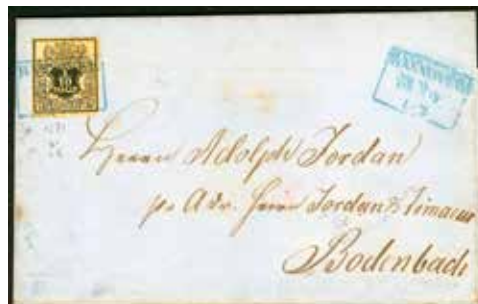 HANNOVER
Herrn Adolph Jordan
pr Adr. Herrn Jordan & Timaeus
Bodenbach